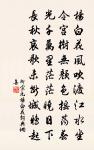 楊白花風吹渡江水坐
令宮樹無顏色搖蕩春
光千萬里茫茫曉日下
長秋哀歌未斷城鴉起
柳宗元楊白花